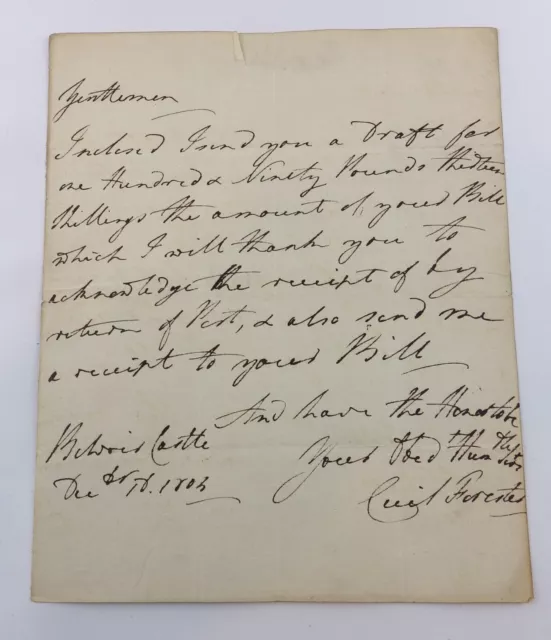 Gentlemen
Inclosed I send you a Draft for
one Hundred & Ninety Pounds thirteen
Shillings the amount of your Bill
which I will thank you to
acknowledge the receipt of by
return of Post, & also send me
a receipt to your Bill
And have the Honor to be
Your Obed Hum
Belvoir Castle
Decbr 1804
Cecil Forester